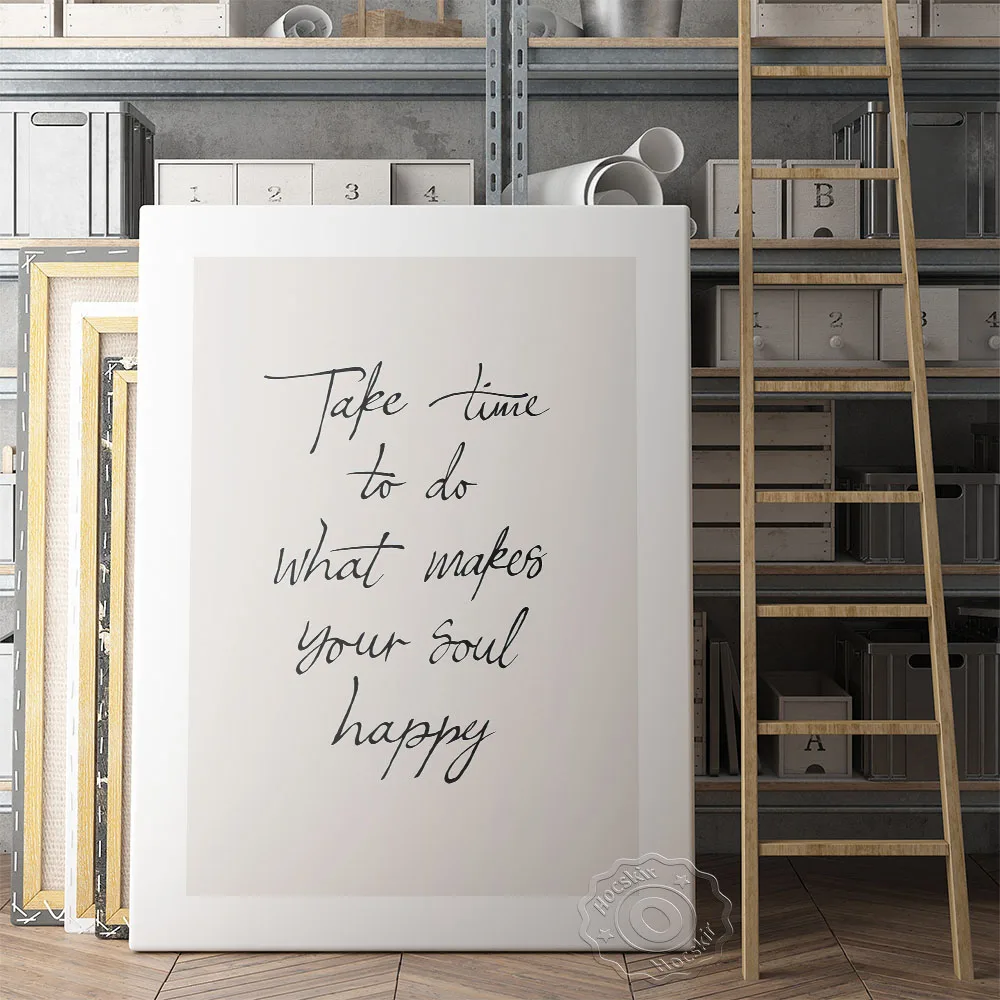 1 2 3 4
A B
1 2 3 4
Take time
to do
what makes
your soul
happy
A
Hocskir
Hocskir